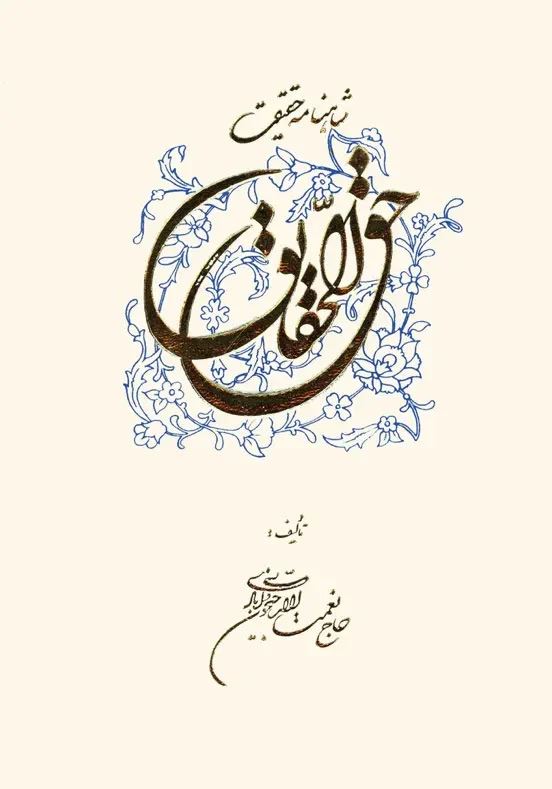 شاهنامه حقیقت
حق الحقایق
تألیف:
حاج نعمت الله جیحون آبادی